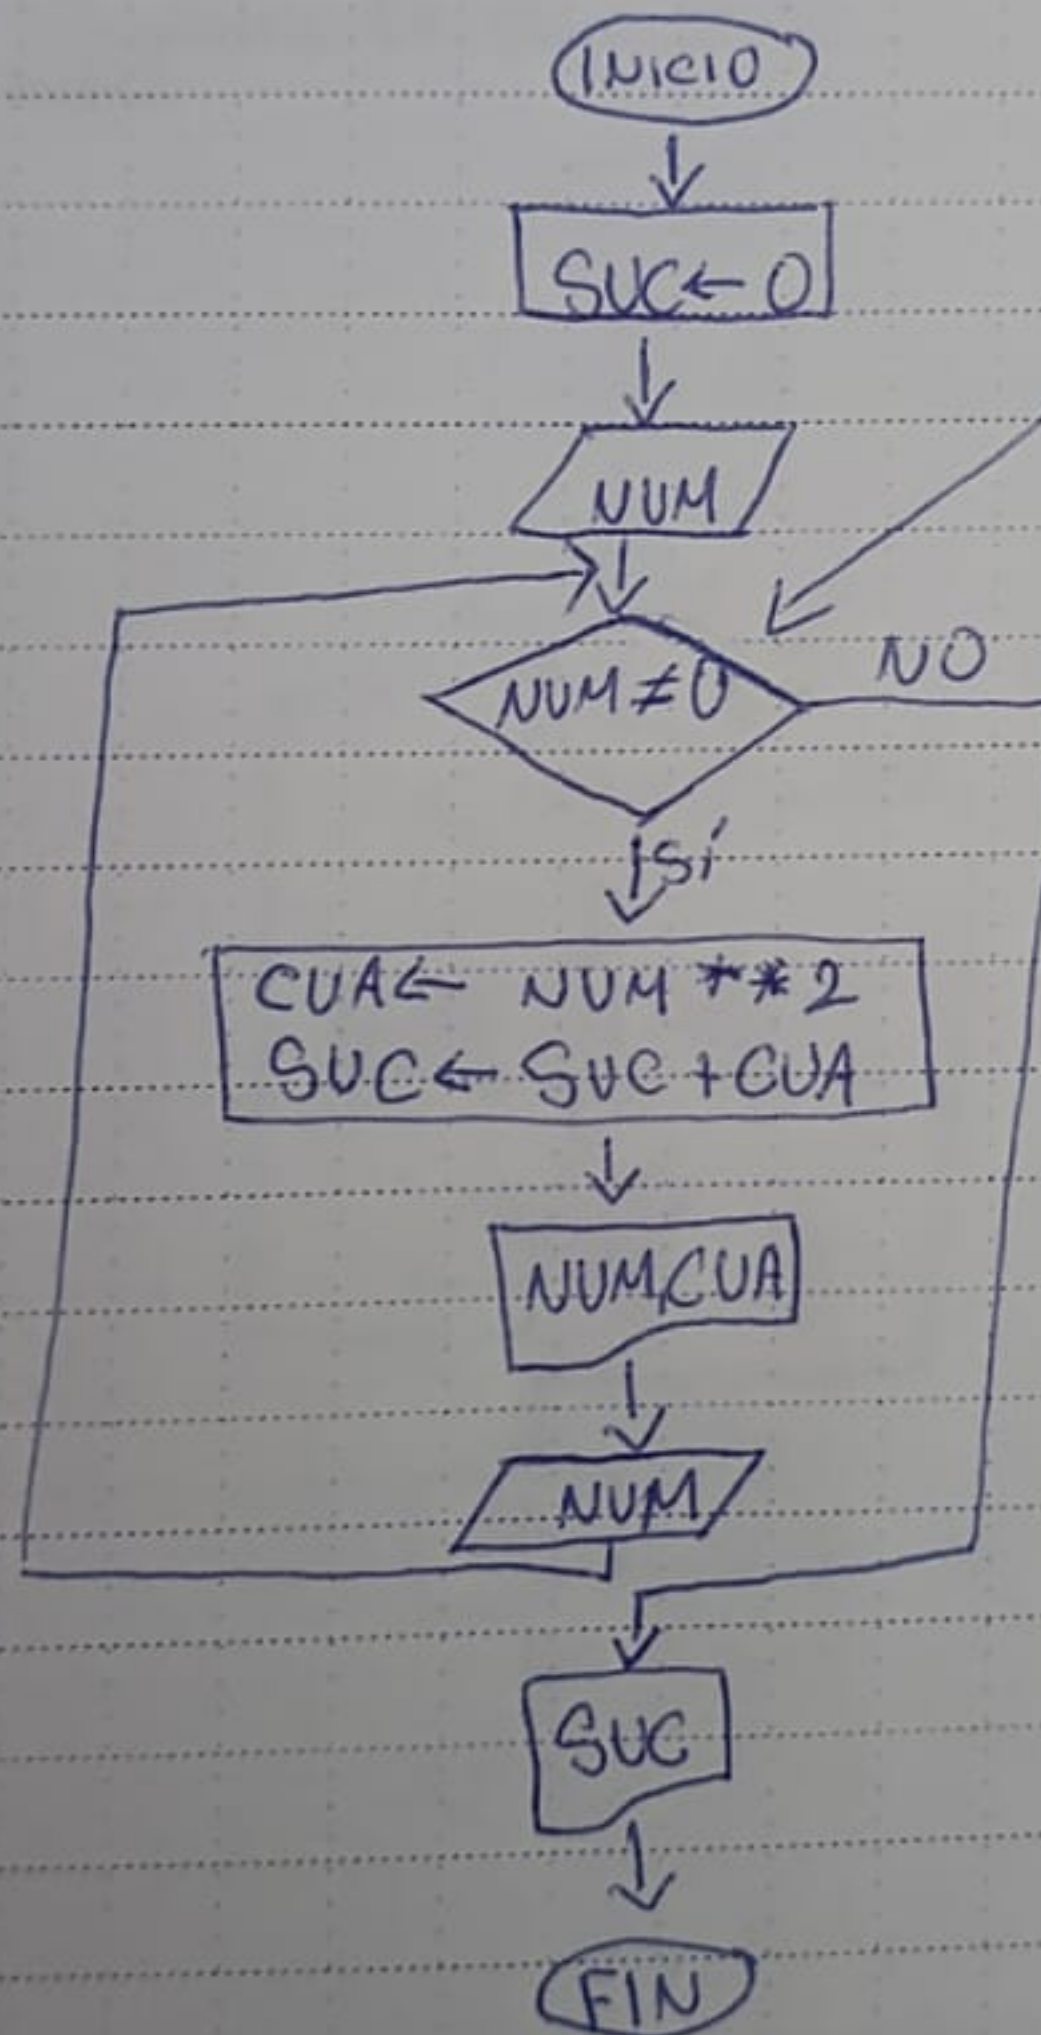 INICIO
SUC ← 0
NUM
NUM ≠ 0
NO
Sí
CUA ← NUM ** 2
SUC ← SUC + CUA
NUM, CUA
NUM
SUC
FIN